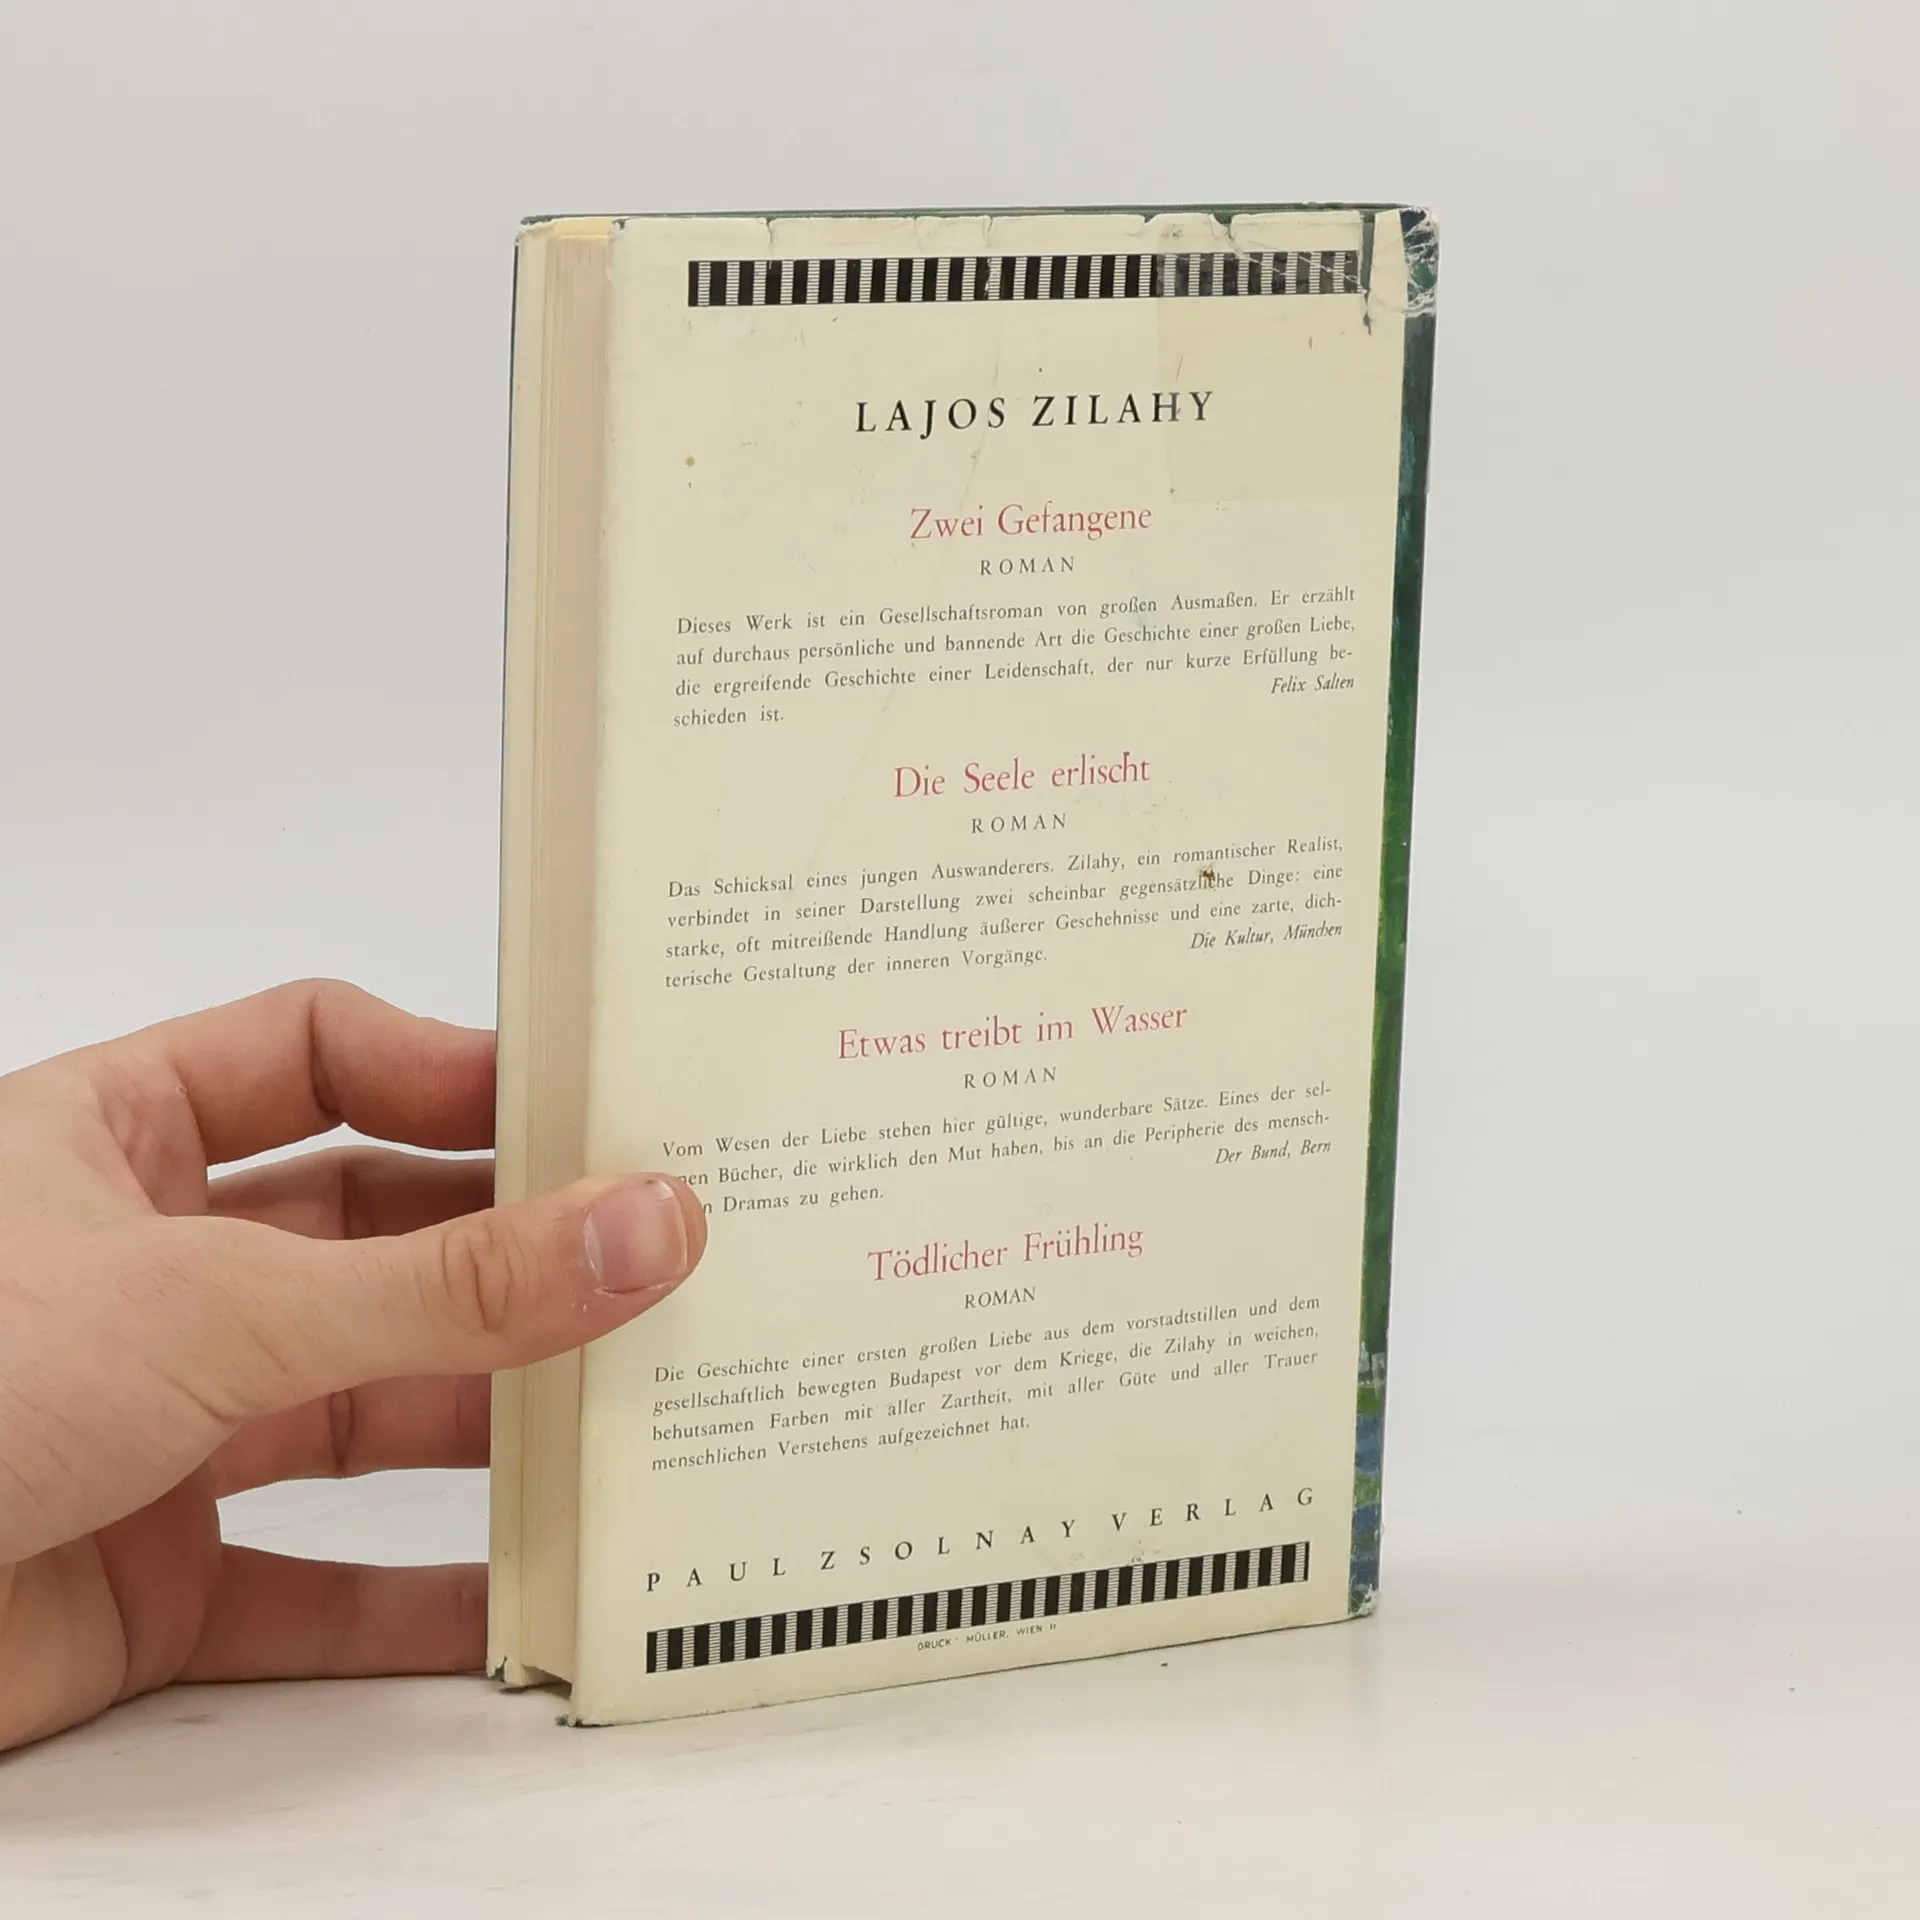 LAJOS ZILAHY
Zwei Gefangene
ROMAN
Dieses Werk ist ein Gesellschaftsroman von großen Ausmaßen. Er erzählt
auf durchaus persönliche und bannende Art die Geschichte einer großen Liebe,
die ergreifende Geschichte einer Leidenschaft, der nur kurze Erfüllung be-
schieden ist.
Felix Salten
Die Seele erlischt
ROMAN
Das Schicksal eines jungen Auswanderers. Zilahy, ein romantischer Realist,
verbindet in seiner Darstellung zwei scheinbar gegensätzliche Dinge: eine
starke, oft mitreißende Handlung äußerer Geschehnisse und eine zarte, dich-
terische Gestaltung der inneren Vorgänge.
Die Kultur, München
Etwas treibt im Wasser
ROMAN
Vom Wesen der Liebe stehen hier gültige, wunderbare Sätze. Eines der sel-
nen Bücher, die wirklich den Mut haben, bis an die Peripherie des mensch-
n Dramas zu gehen.
Der Bund, Bern
Tödlicher Frühling
ROMAN
Die Geschichte einer ersten großen Liebe aus dem vorstadtstillen und dem
gesellschaftlich bewegten Budapest vor dem Kriege, die Zilahy in weichen,
behutsamen Farben mit aller Zartheit, mit aller Güte und aller Trauer
menschlichen Verstehens aufgezeichnet hat.
PAUL ZSOLNAY VERLAG
DRUCK: MÜLLER, WIEN II